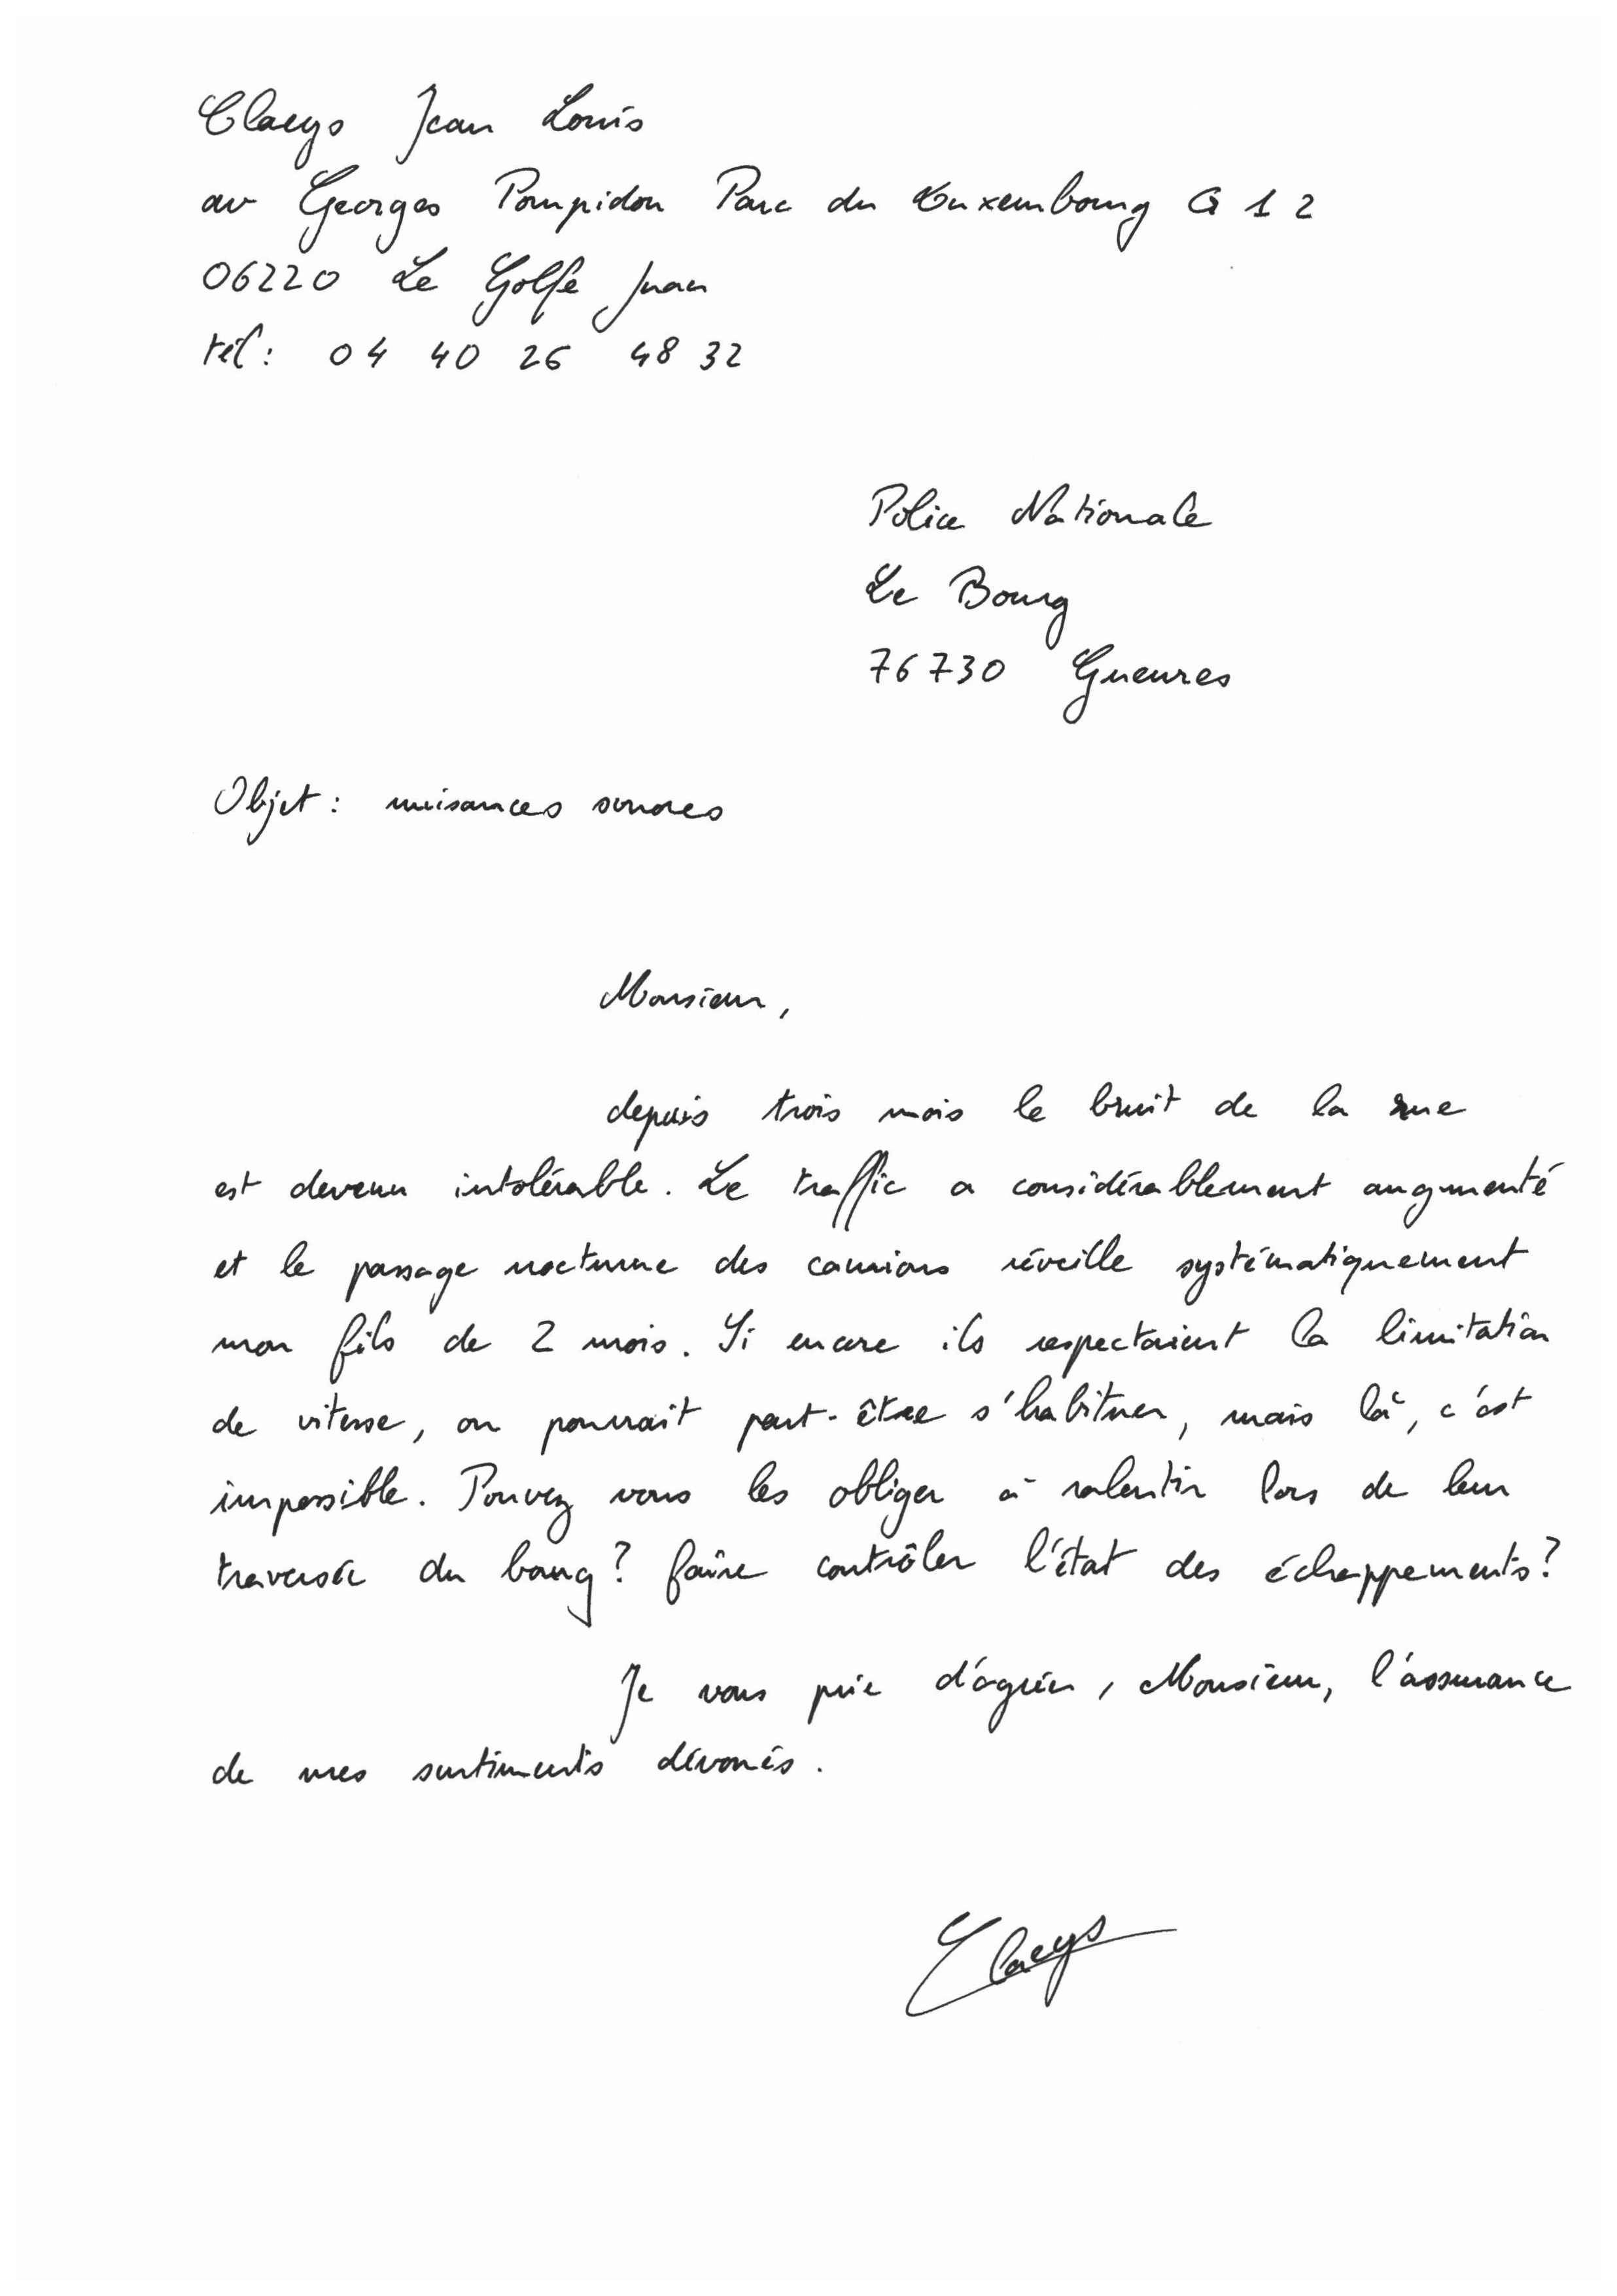 Claeys Jean Louis
av Georges Pompidou Parc du Luxembourg G 1 2
06220 Le Golfe Juan
tél : 04 40 26 48 32
Police Nationale
Le Bourg
76730 Gueures
Objet : nuisances sonores
Monsieur,
depuis trois mois le bruit de la rue
est devenu intolérable. Le traffic a considérablement augmenté
et le passage nocturne des camions réveille systématiquement
mon fils de 2 mois. Si encore ils respectaient la limitation
de vitesse, on pourrait peut-être s'habituer, mais là, c'est
impossible. Pouvez vous les obliger à ralentir lors de leur
traversée du bourg ? faire contrôler l'état des échappements ?
Je vous prie d'agréer, Monsieur, l'assurance
de mes sentiments dévoués.
Claeys